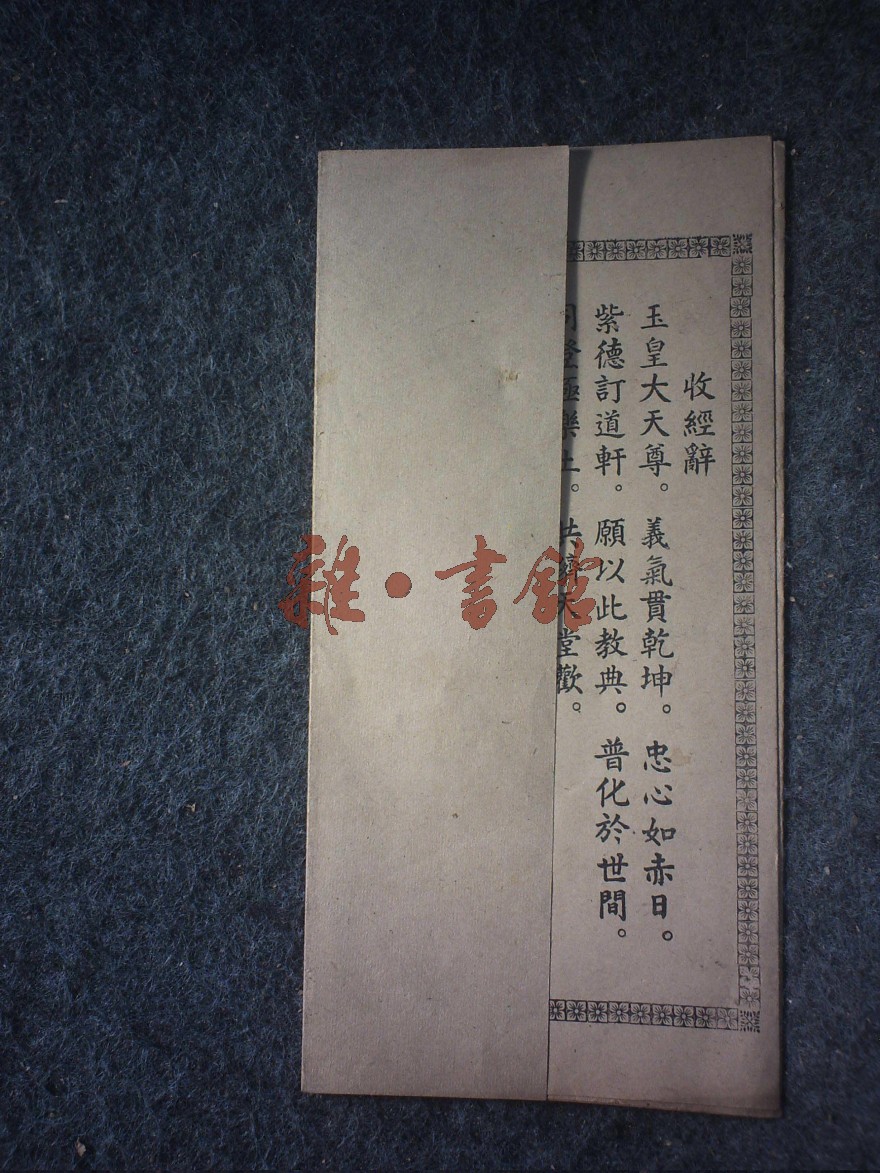 收經辭
玉皇大天尊。義氣貫乾坤。忠心如赤日。
紫德訂道軒。願以此教典。普化於世間。
同登極樂土。共濟天堂歡。
雜·書館